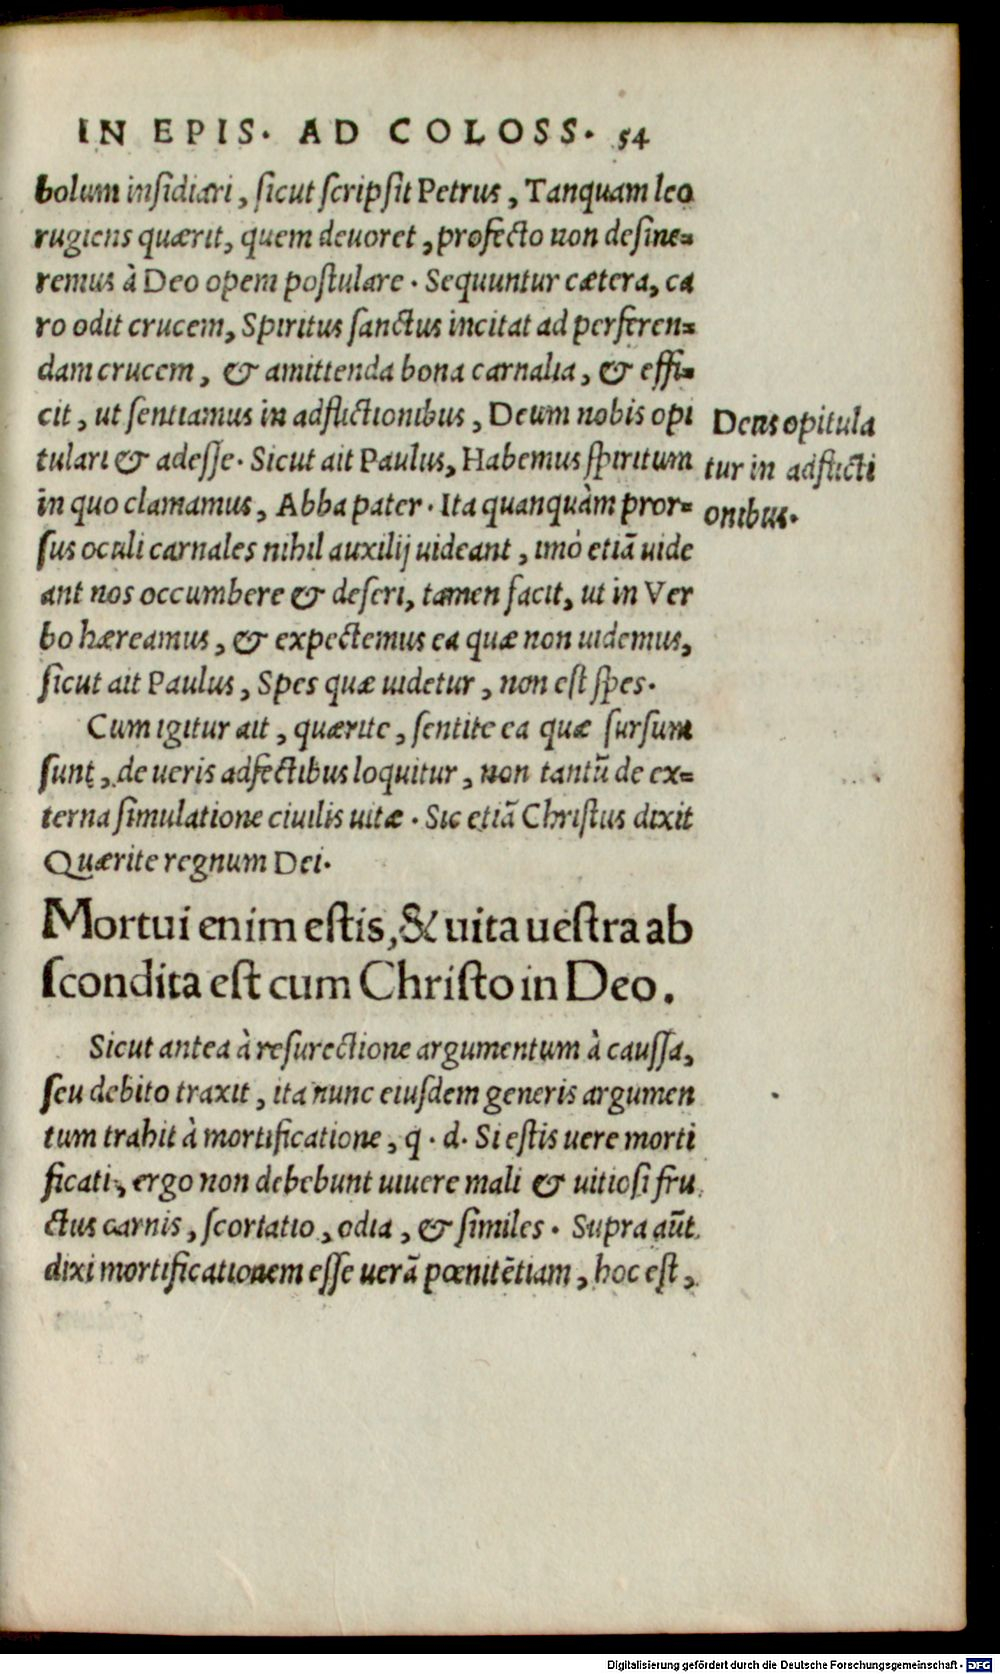 IN EPIS. AD COLOSS. 54
bolum insidiari, sicut scripsit Petrus, Tanquam leo
rugiens quærit, quem deuoret, profecto non desine=
remus à Deo opem postulare. Sequuntur cætera, ca
ro odit crucem, Spiritus sanctus incitat ad perferen=
dam crucem, & amittenda bona carnalia, & effi=
cit, ut sentiamus in adflictionibus, Deum nobis opi
tulari & adesse. Sicut ait Paulus, Habemus spiritum
in quo clamamus, Abba pater. Ita quanquàm pror=
sus oculi carnales nihil auxilij uideant, imò etiã uide
ant nos occumbere & deseri, tamen facit, ut in Ver
bo hæreamus, & expectemus ea quæ non uidemus,
sicut ait Paulus, Spes quæ uidetur, non est spes.
Deus opitula
tur in adflicti
onibus.
Cum igitur ait, quærite, sentite ea quæ sursum
sunt, de ueris adfectibus loquitur, non tantũ de ex=
terna simulatione ciuilis uitæ. Sic etiã Christus dixit
Quærite regnum Dei.
Mortui enim estis, & uita uestra ab
scondita est cum Christo in Deo.
Sicut antea à resurectione argumentum à caussa,
seu debito traxit, ita nunc eiusdem generis argumen
tum trahit à mortificatione, q. d. Si estis uere morti
ficati, ergo non debebunt uiuere mali & uitiosi fru
ctus carnis, scortatio, odia, & similes. Supra aũt
dixi mortificationem esse uerã pœnitẽtiam, hoc est,
Digitalisierung gefördert durch die Deutsche Forschungsgemeinschaft - DFG